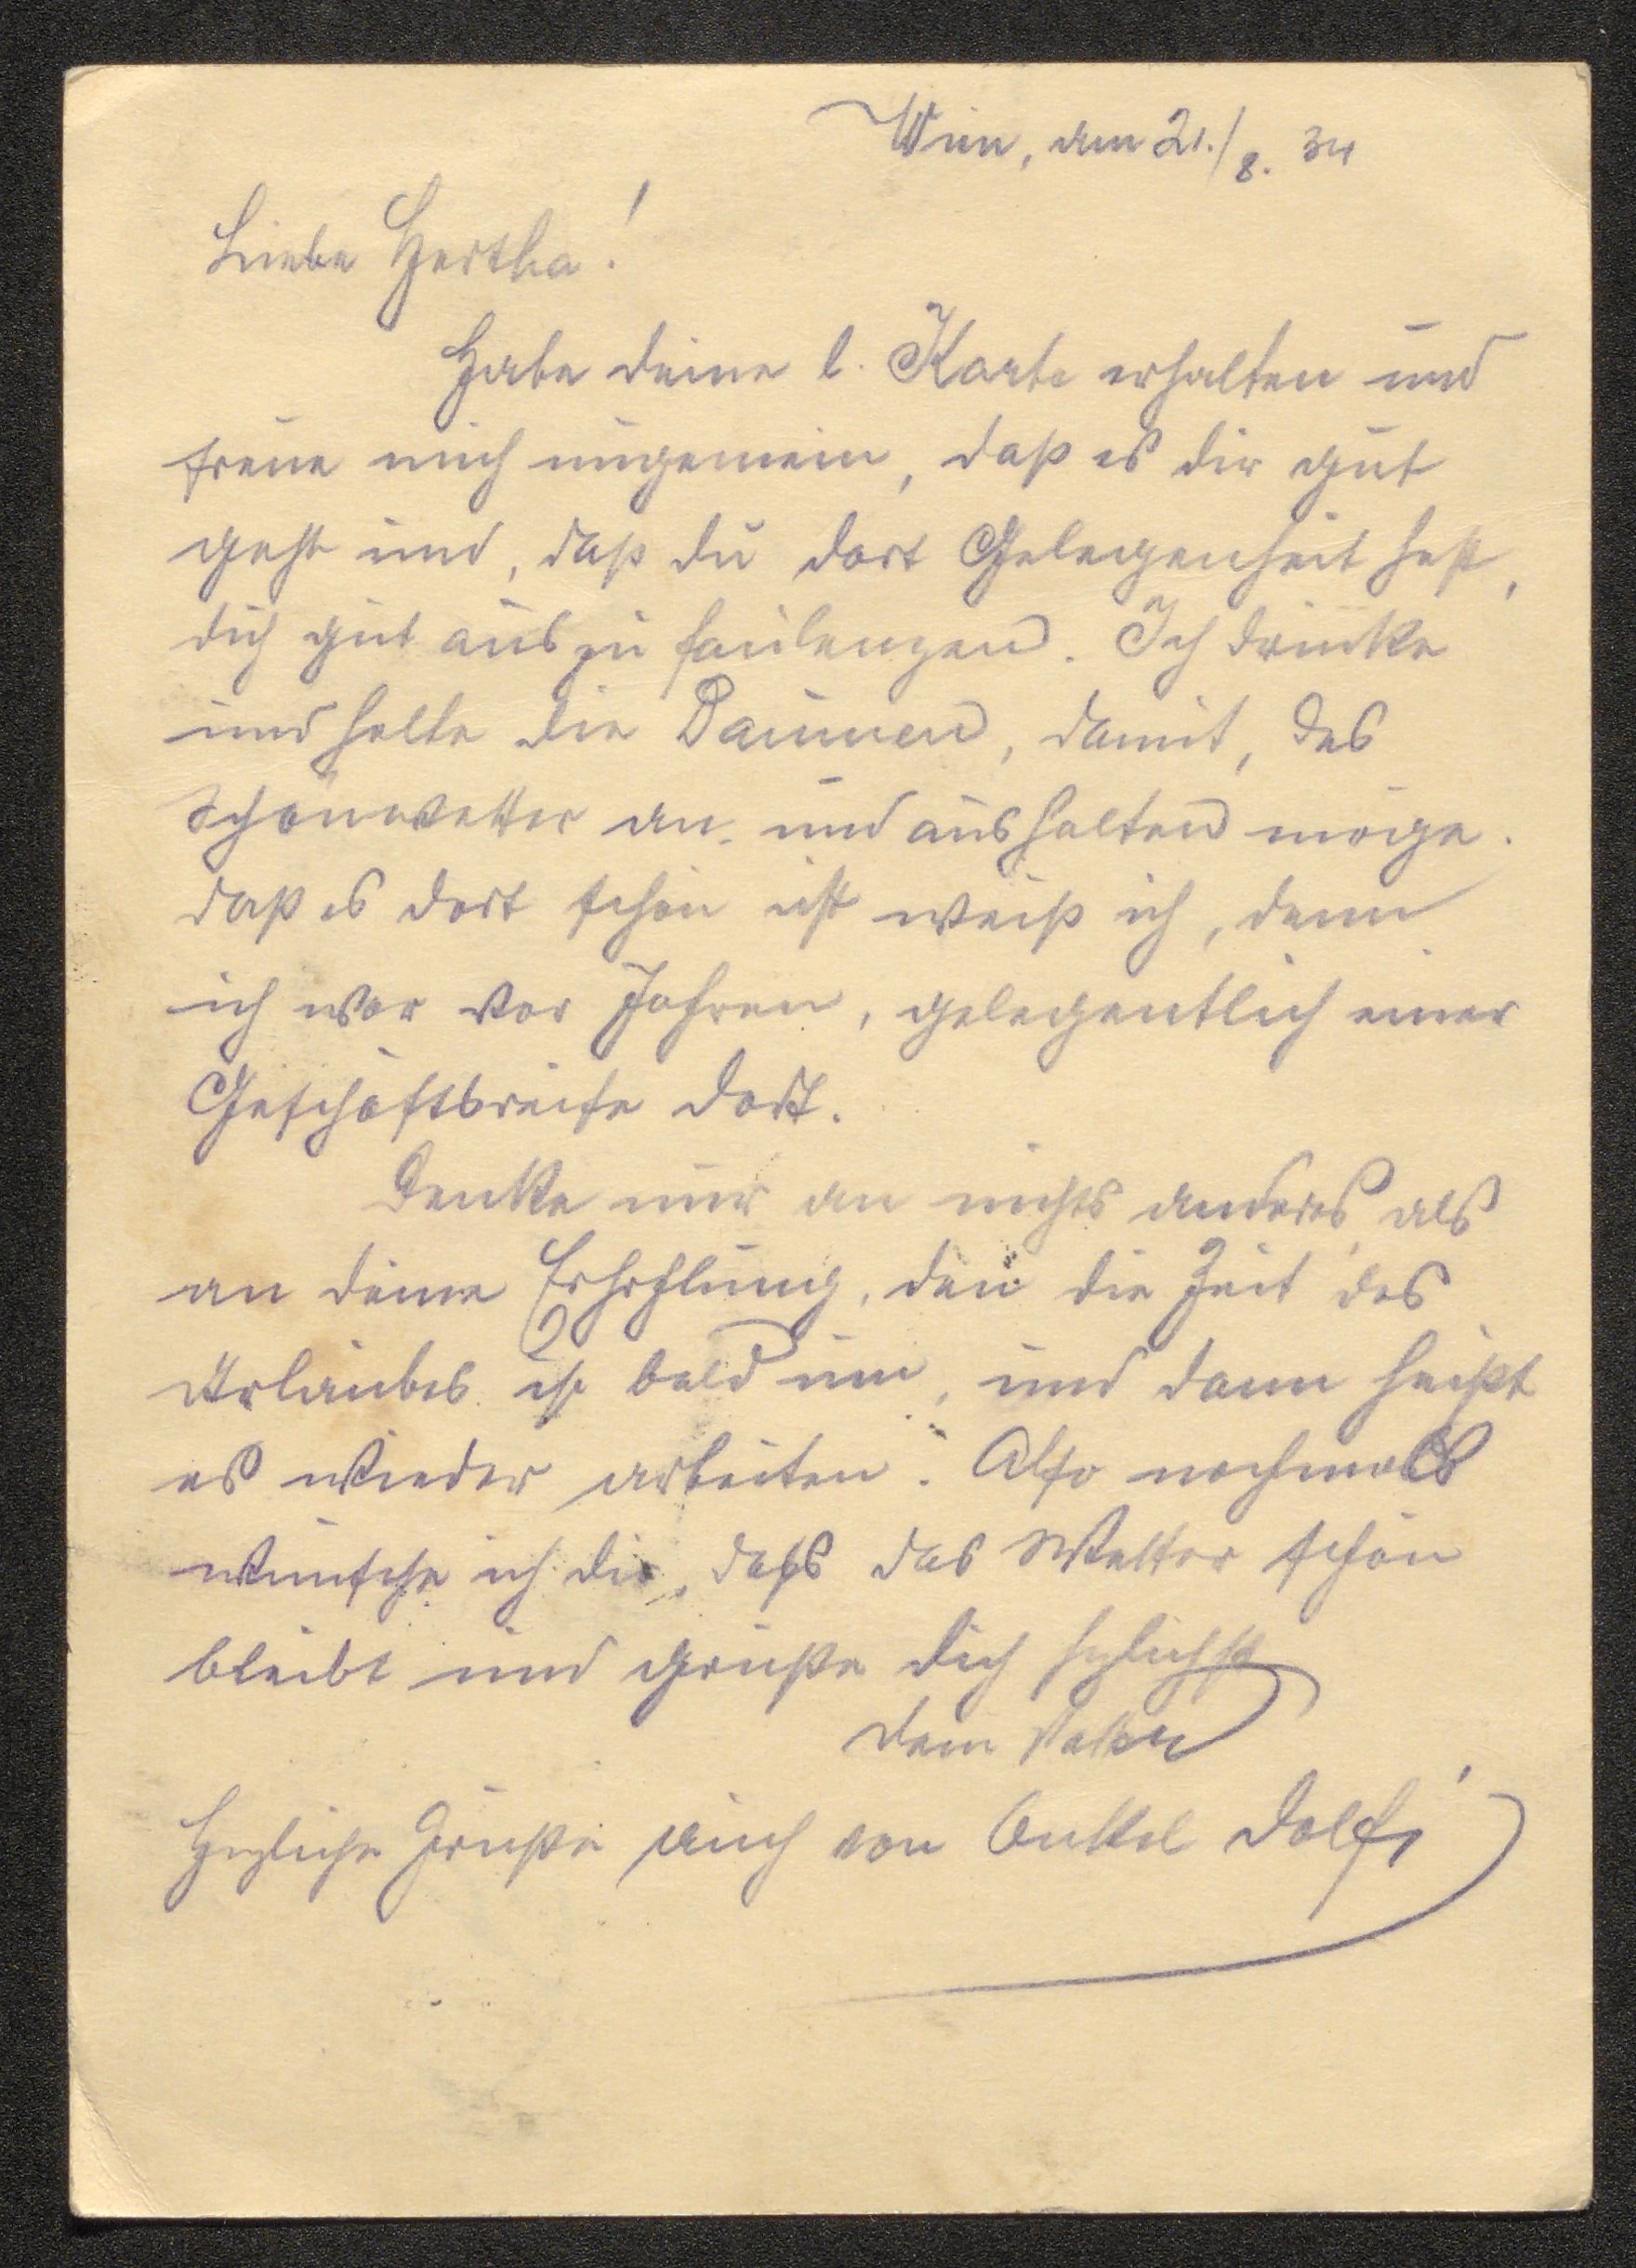 Wien, am 21./8. 34
Liebe Hertha!
Habe deine l. Karte erhalten und
freue mich ungemein, daß es dir gut
geht und, daß du dort Gelegenheit hast,
dich gut aus zu faulenzen. Ich drücke
und halte die Daumen, damit, das
Schönwetter an- und aushalten möge.
daß es dort schön ist weiß ich, denn
ich war vor Jahren, gelegentlich einer
Geschäftsreise dort.
Denke nur an nichts anderes, als
an deine Erhohlung, den die Zeit des
Urlaubes ist bald um, und dann heißt
es wieder arbeiten. Also nochmals
wünsche ich dir, dass das Wetter schön
bleibt und grüße dich hzlichst
dein Vater
Hzliche Grüße auch von Onkel Dolfi